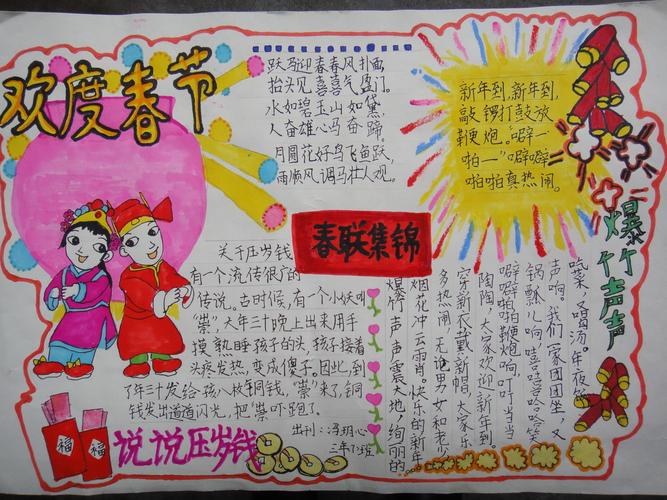 欢度春节
跃马迎春春风扑面
抬头见喜喜气盈门。
水如碧玉山如黛
人奋雄心马奋蹄
月圆花好鸟飞鱼跃,
雨顺风调马壮人观。
新年到,新年到,
敲锣打鼓放
鞭炮。“噼一
啪一”噼噼
啪啪真热闹。
春联集锦
关于压岁钱
有一个流传很广的
传说。古时候,有一个小妖叫
“祟”,大年三十晚上出来用手
摸熟睡孩子的头孩子接着
头疼发热,变成傻子。因此,到
了年三十发给孩八枚铜钱,“祟”来了,铜
钱发出道道闪光,把“祟”吓跑了。
说说压岁钱
福
福
出刊:
三年
班
爆竹声声
吃菜,喝汤年夜饭
声响。我们一家团团坐,又
锅瓢儿响嘻嘻哈哈笑
噼噼啪啪鞭炮响叮叮当当
陶陶,大家欢迎新年到。
穿新衣戴新帽大家乐
多热闹,无论男女和老少
烟花冲云霄。快乐的新年
爆竹声声震大地,绚丽的